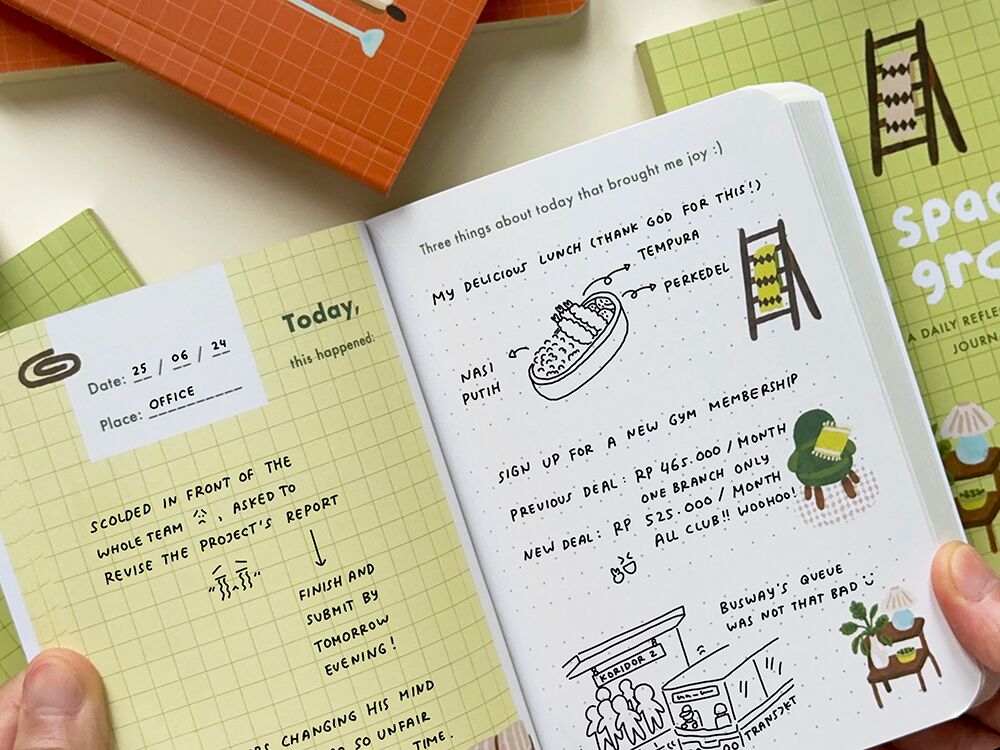 Date: 25 / 06 / 24
Place: OFFICE
Today,
this happened:
SCOLDED IN FRONT OF THE
WHOLE TEAM , ASKED TO
REVISE THE PROJECT'S REPORT
FINISH AND
SUBMIT BY
TOMORROW
EVENING!
CHANGING HIS MIND
SO UNFAIR
TIME.
Three things about today that brought me joy :)
MY DELICIOUS LUNCH (THANK GOD FOR THIS!)
TEMPURA
PERKEDEL
NASI
PUTIH
SIGN UP FOR A NEW GYM MEMBERSHIP
PREVIOUS DEAL: RP 465.000 / MONTH
ONE BRANCH ONLY
NEW DEAL: RP 525.000 / MONTH
ALL CLUB!! WOOHOO!
BUSWAY'S QUEUE
WAS NOT THAT BAD
KORIDOR 2
TRANSJKT
A DAILY REFLE
JOURN